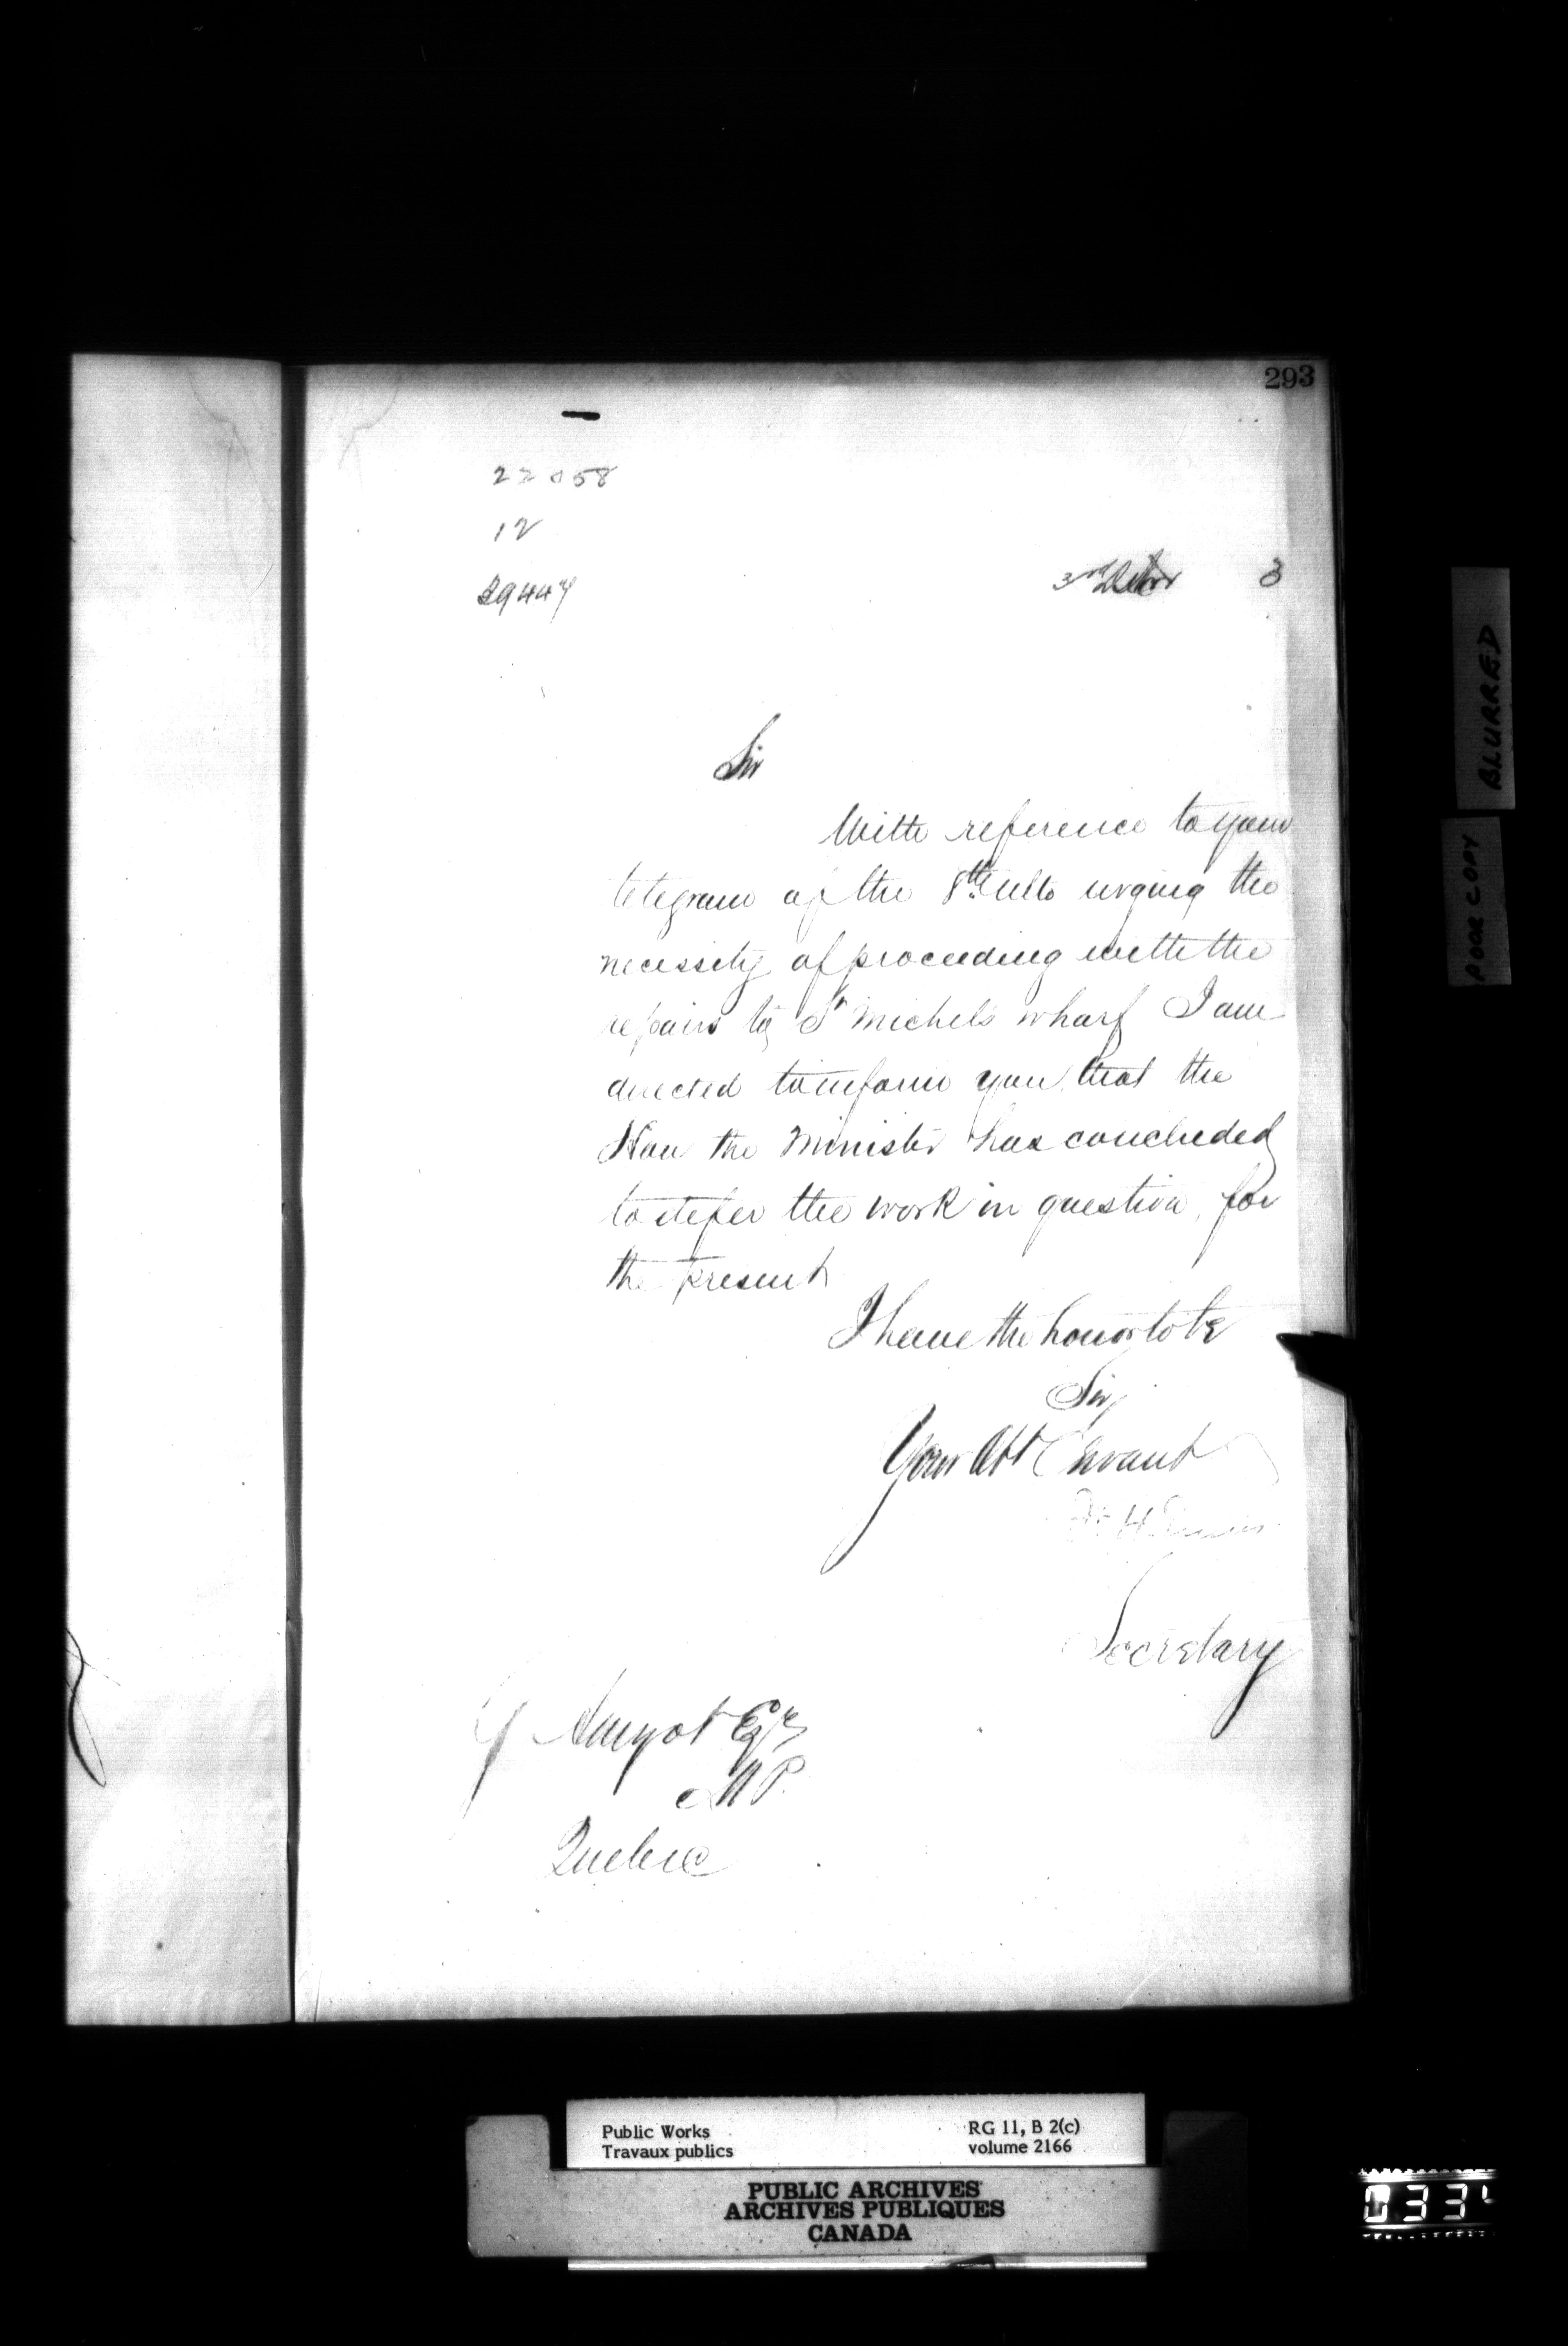 293
22058
12
39447
3rd Decr 3
Sir
With reference to your
telegram of the 8th ulto urging the
necessity of proceeding with the
repairs to St Michels wharf I am
directed to inform you that the
Hon the Minister has concluded
to defer the work in question, for
the present
I have the honor to be
Sir,
Your Obt Servant
Secretary
G Amyot Esqre
M P.
Quebec
BLURRED
POOR COPY
Public Works RG 11, B 2(c)
Travaux publics volume 2166
PUBLIC ARCHIVES
ARCHIVES PUBLIQUES
CANADA
033